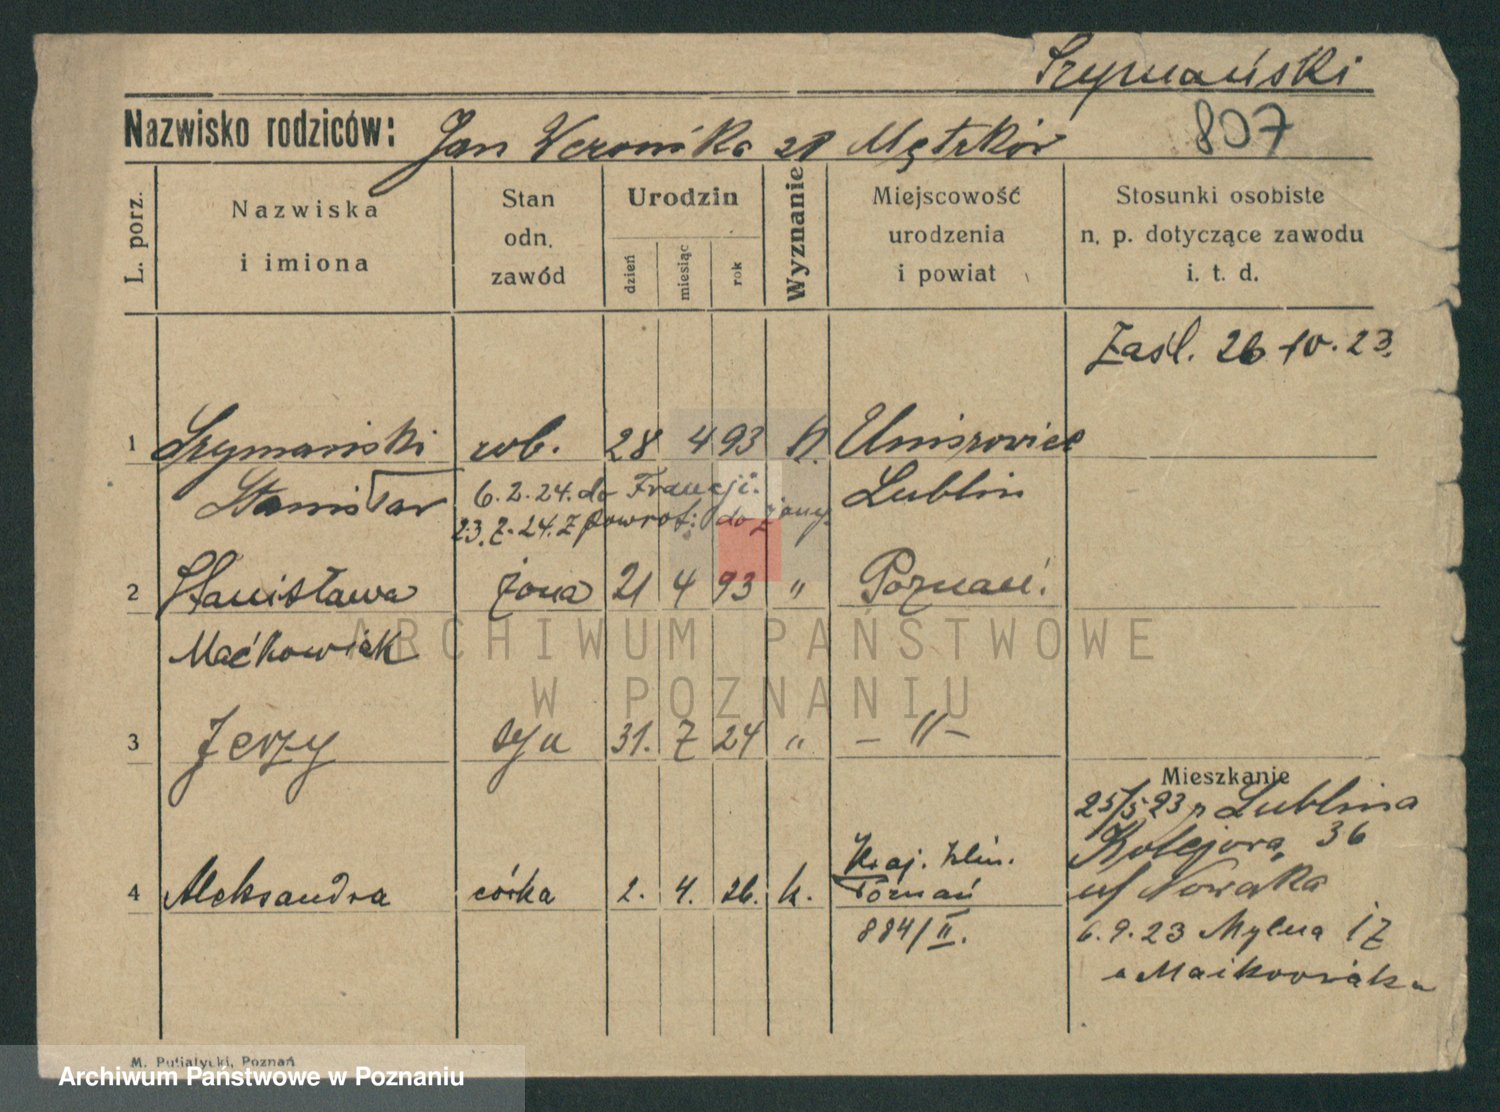 Szymański
Nazwisko rodziców: Jan Weronika zd Mętrków
807
L. porz.
Nazwiska
i imiona
Stan
odn.
zawód
Urodzin
dzień
miesiąc
rok
Wyznanie
Miejscowość
urodzenia
i powiat
Stosunki osobiste
n. p. dotyczące zawodu
i. t. d.
Zaśl. 26.10.23.
1 Szymański rob. 28 4 93 k. Uniszowice
Stanisław 6.2.24. do Francji. Lublin
23.7.24. z powrot: do żony
2 Stanisława żona 21 4 93 " Poznań.
Maćkowiak
ARCHIWUM PAŃSTWOWE
W POZNANIU
3 Jerzy syn 31. 7 24 " – " –
Mieszkanie
25/5 23 z Lublina
Kolejowa 36
u/ Nowaka
4 Aleksandra córka 2. 4. 26. k. Kraj. klin.
Poznań
884/II.
6.9.23 Mylna 17
u Maćkowiaka
M. Putiatycki, Poznań
Archiwum Państwowe w Poznaniu